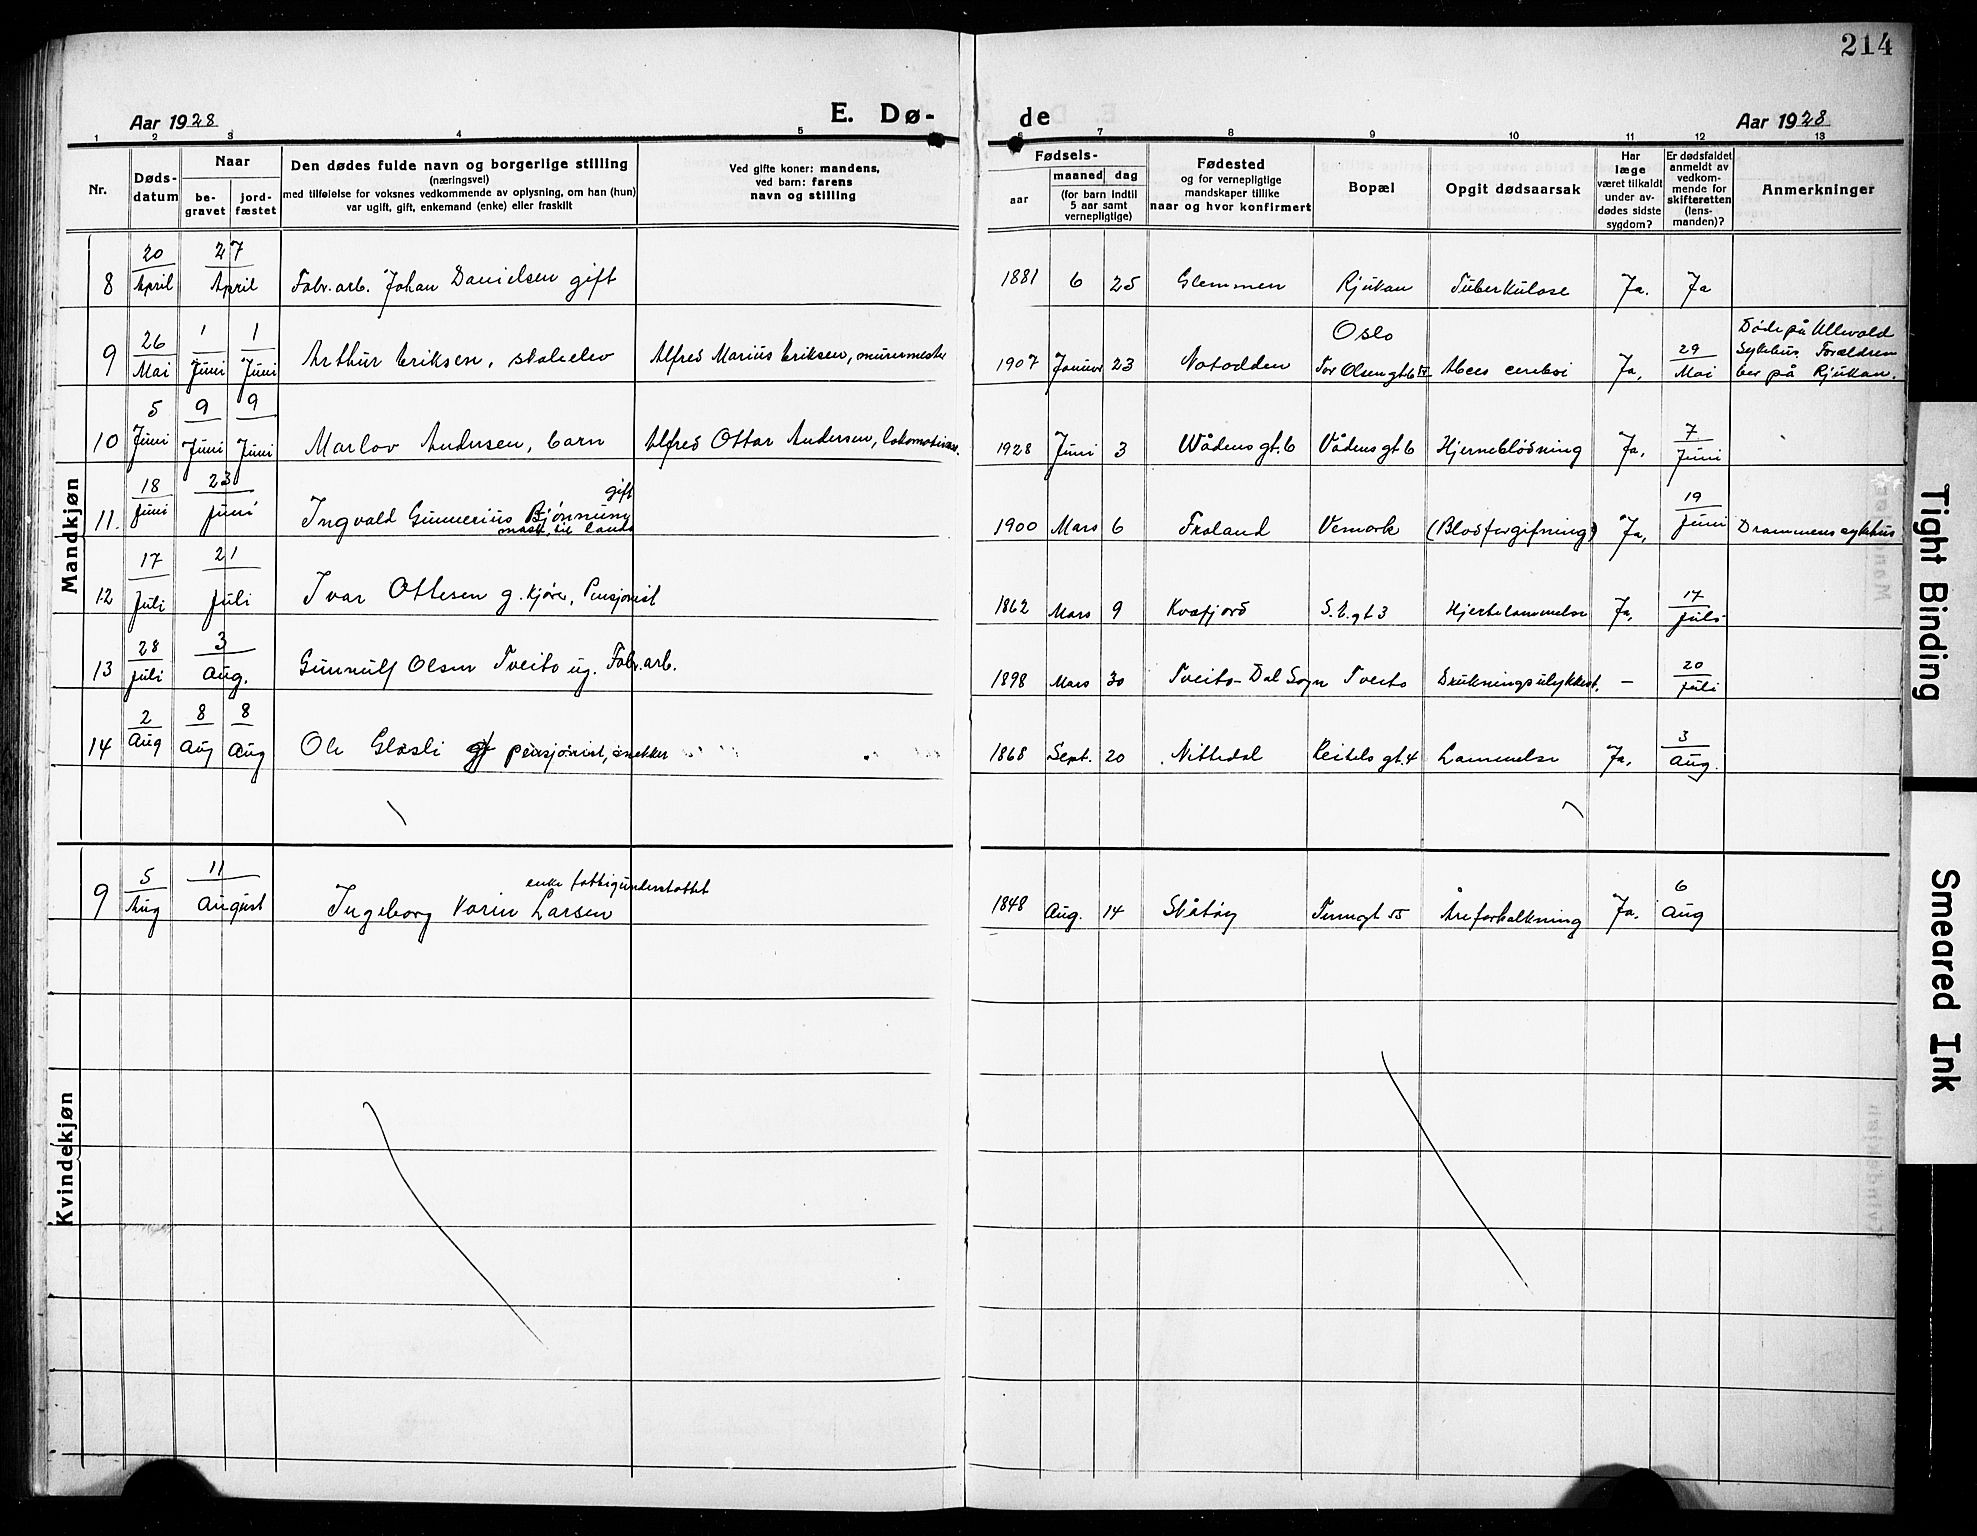 214
Aar 1928
E. Dø-
de
Aar 1928
1 2 3 4 5 6 7 8 9 10 11 12 13
Nr.
Døds-
datum
Naar
be-
gravet
jord-
fæstet
Den dødes fulde navn og borgerlige stilling
(næringsvei)
med tilføielse for voksnes vedkommende av oplysning, om han (hun)
var ugift, gift, enkemand (enke) eller fraskilt
Ved gifte koner: mandens,
ved barn: farens
navn og stilling
Fødsels-
aar
maaned dag
(for barn indtil
5 aar samt
vernepligtige)
Fødested
og for vernepligtige
mandskaper tillike
naar og hvor konfirmert
Bopæl
Opgit dødsaarsak
Har
læge
været tilkaldt
under av-
dødes sidste
sygdom?
Er dødsfaldet
anmeldt av
vedkom-
mende for
skifteretten
(lens-
manden)?
Anmerkninger
Mandkjøn
8 20 April 27 April Fabr. arb. Johan Danielsen gift 1881 6 25 Glemmen Rjukan Tuberkulose Ja. Ja
9 26 Mai 1 Juni 1 Juni Arthur Eriksen, skoleelev Alfred Marius Eriksen, murermester 1907 Januar 23 Notodden Oslo Tor Olsengt 6 IV Abces cerebri Ja, 29 Mai Døde på Ullevold Sykehus. Forældrene bor på Rjukan.
10 5 Juni 9 Juni 9 Juni Marlov Andersen, barn Alfred Ottar Andersen, 1928 Juni 3 Wådens gt. 6 Vådens gt 6 Hjerneblødning Ja, 7 Juni
11. 18 Juni 23 Juni Ingvald Gunnerius gift mask. til lands 1900 Mars 6 Froland Vemork (Blodforgifning) Ja, 19 Juni Drammens sykehus
12 17 Juli 21 Juli Ivar Ottesen g. Kjører, Pensjonist 1862 Mars 9 Kvæfjord S. E. gt 3 Hjertelammelse Ja, 17 Juli
13 28 Juli 3 Aug. Gunnulf Olsen Tveito ug. Fabr. arb. 1898 Mars 30 Tveito - Dal Sogn Tveito Drukningsulykkest. — 20 Juli
14 2 Aug 8 Aug 8 Aug Ole Glosli gf pensjonist, snekker 1868 Sept. 20 Nittedal gt. 4 Lammelse Ja, 3 Aug.
Kvindekjøn
9 5 Aug 11 August Ingeborg Karin Larsen enke fattigunderstøttet 1848 Aug. 14 Skåtøy Åreforkalkning Ja. 6 Aug
Tight Binding
Smeared Ink